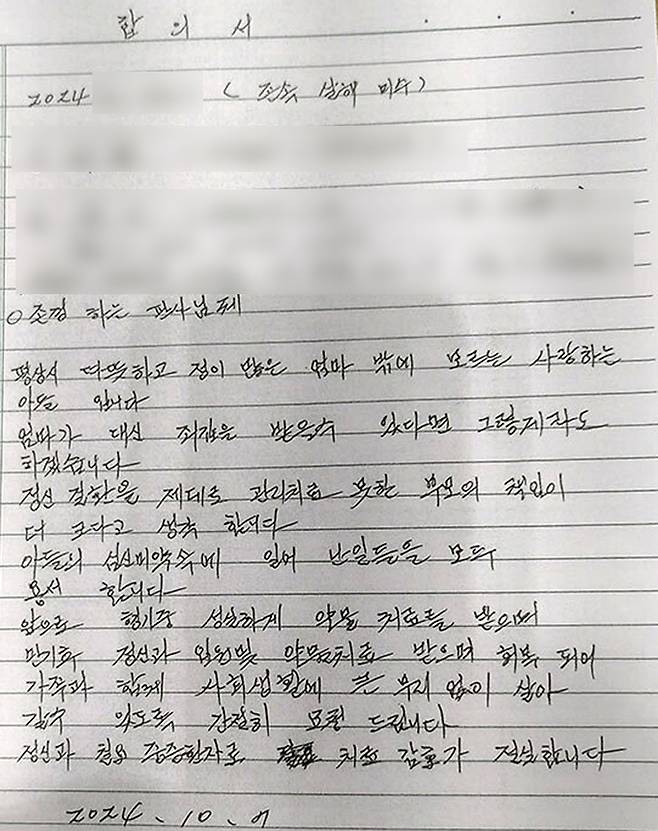 합 의 서
2024 (존속 살해 미수)
○ 존경 하는 판사님께
평상시 따뜻하고 정이 많은 엄마 밖에 모르는 사랑하는
아들 입니다
엄마가 대신 죄값을 받을수 있다면 그렇게라도
하겠습니다
정신 질환을 제대로 관리치료 못한 부모의 책임이
더 크다고 생각 합니다
아들의 심신미약속에 일어 난일들을 모두
용서 합니다
앞으로 형기중 성실하게 약물 치료를 받으며
만기후 정신과 입원및 약물치료 받으며 회복 되어
가족과 함께 사회생활에 큰 무리 없이 살아
갈수 있도록 간절히 요청 드립니다
정신과 질환 중증환자로 치료 감호가 절실합니다
2024. 10. 7